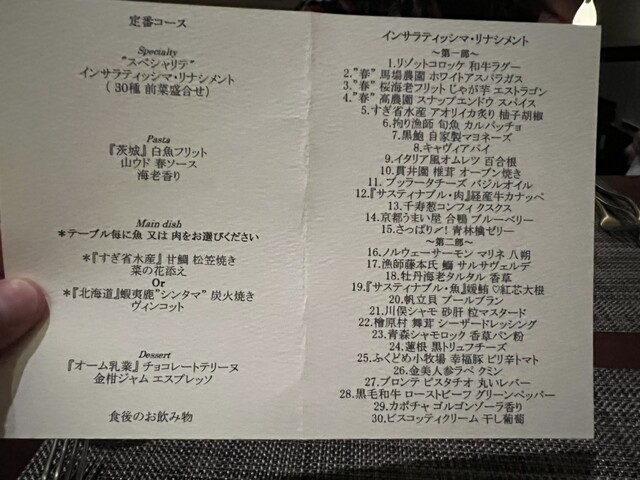 定番コース
Specialty
"スペシャリテ"
インサラティッシマ・リナシメント
( 30種 前菜盛合せ)
Pasta
『茨城』白魚フリット
山ウド 春ソース
海老香り
Main dish
＊テーブル毎に魚 又は 肉をお選びください
＊『すぎ省水産』甘鯛 松笠焼き
菜の花添え
Or
＊『北海道』蝦夷鹿"シンタマ" 炭火焼き
ヴィンコット
Dessert
『オーム乳業』チョコレートテリーヌ
金柑ジャム エスプレッソ
食後のお飲み物
インサラティッシマ・リナシメント
～第一部～
1.リゾットコロッケ 和牛ラグー
2."春" 馬場農園 ホワイトアスパラガス
3."春" 桜海老フリット じゃが芋 エストラゴン
4."春" 高農園 スナップエンドウ スパイス
5.すぎ省水産 アオリイカ炙り 柚子胡椒
6.拘り漁師 旬魚 カルパッチョ
7.黒鮑 自家製マヨネーズ
8.キャヴィアパイ
9.イタリア風オムレツ 百合根
10.貫井園 椎茸 オーブン焼き
11. ブッラータチーズ バジルオイル
12.『サスティナブル・肉』経産牛カナッペ
13.千寿葱コンフィ クスクス
14.京都うまい屋 合鴨 ブルーベリー
15.さっぱり〆! 青林檎ゼリー
～第二部～
16.ノルウェーサーモン マリネ 八朔
17.漁師藤本氏 鰤 サルサヴェルデ
18.牡丹海老タルタル 香草
19.『サスティナブル・魚』媛鮪 ♡紅芯大根
20.帆立貝 ブールブラン
21.川俣シャモ 砂肝 粒マスタード
22.檜原村 舞茸 シーザードレッシング
23.青森シャモロック 香草パン粉
24.蓮根 黒トリュフチーズ
25.ふくどめ小牧場 幸福豚 ピリ辛トマト
26.金美人参ラペ クミン
27.ブロンテ ピスタチオ 丸いレバー
28.黒毛和牛 ローストビーフ グリーンペッパー
29.カボチャ ゴルゴンゾーラ香り
30.ビスコッティクリーム 干し葡萄